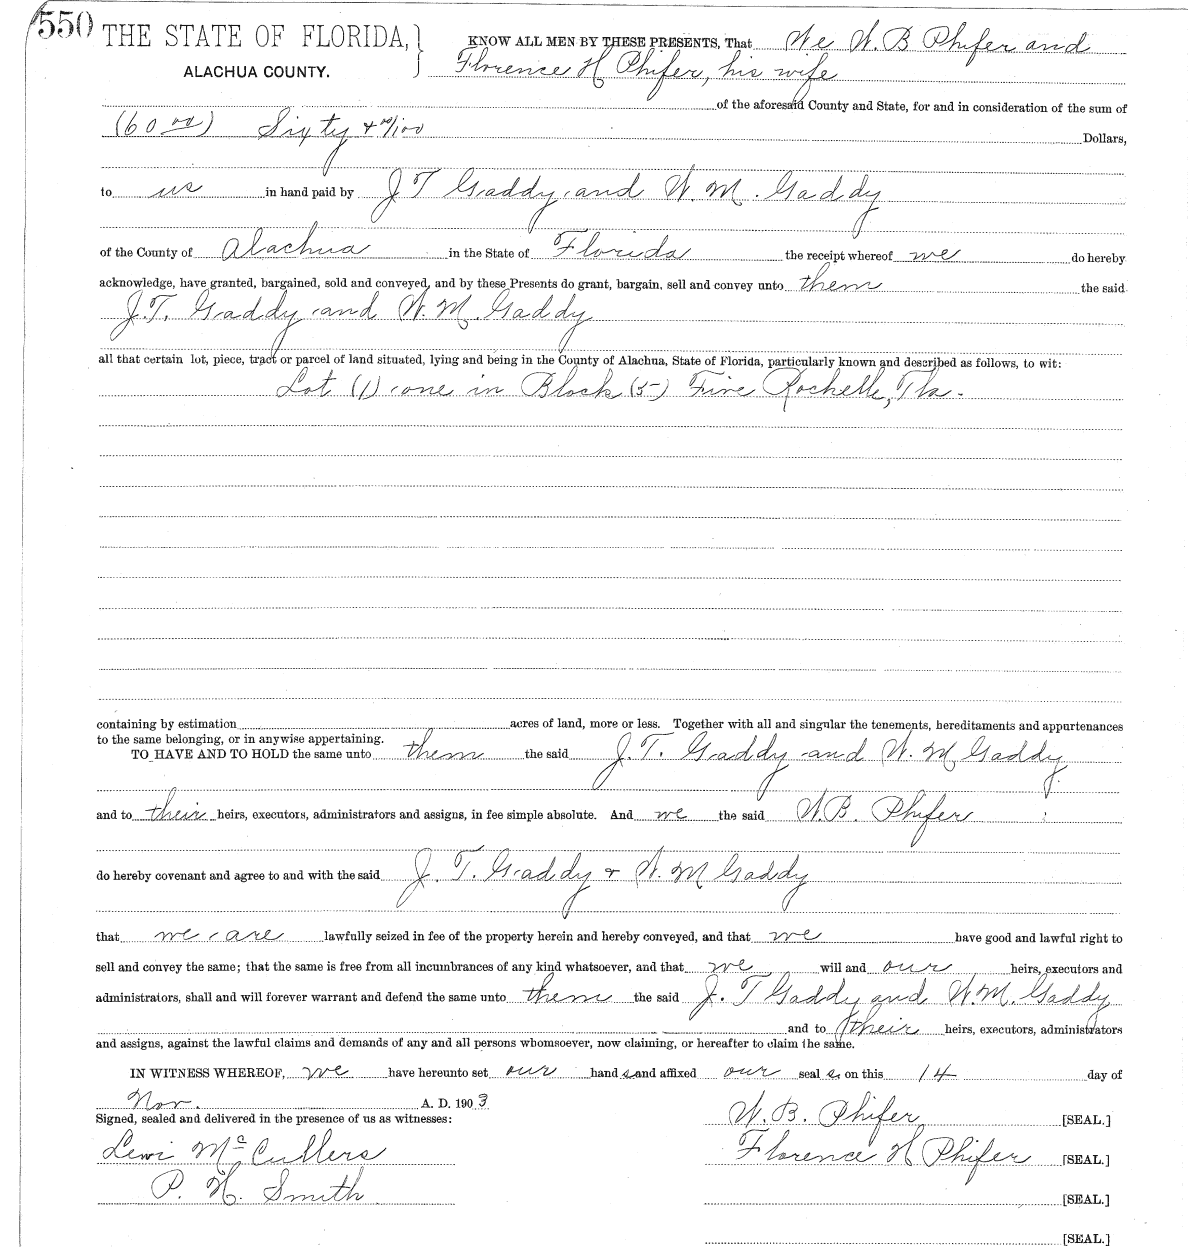 550
THE STATE OF FLORIDA, } KNOW ALL MEN BY THESE PRESENTS, That We W. B Phifer and
ALACHUA COUNTY. Florence H Phifer, his wife
of the aforesaid County and State, for and in consideration of the sum of
(60 00) Sixty & 00/100 Dollars,
to us in hand paid by J T Gaddy and W. M. Gaddy
of the County of Alachua in the State of Florida the receipt whereof we do hereby
acknowledge, have granted, bargained, sold and conveyed, and by these Presents do grant, bargain, sell and convey unto them the said
J.T. Gaddy and W. M. Gaddy
all that certain lot, piece, tract or parcel of land situated, lying and being in the County of Alachua, State of Florida, particularly known and described as follows, to wit:
Lot (1) one in Block (5) Five Rochelle, Fla.
containing by estimation acres of land, more or less. Together with all and singular the tenements, hereditaments and appurtenances
to the same belonging, or in anywise appertaining.
TO HAVE AND TO HOLD the same unto them the said J.T. Gaddy and W. M Gaddy
and to their heirs, executors, administrators and assigns, in fee simple absolute. And we the said W.B. Phifer
do hereby covenant and agree to and with the said J. T. Gaddy & W. M Gaddy
that we are lawfully seized in fee of the property herein and hereby conveyed, and that we have good and lawful right to
sell and convey the same; that the same is free from all incumbrances of any kind whatsoever, and that we will and our heirs, executors and
administrators, shall and will forever warrant and defend the same unto them the said J. T Gaddy and W.M. Gaddy
and to their heirs, executors, administrators
and assigns, against the lawful claims and demands of any and all persons whomsoever, now claiming, or hereafter to claim the same.
IN WITNESS WHEREOF, we have hereunto set our hand s and affixed our seal s, on this 14 day of
Nov. A. D. 1903
Signed, sealed and delivered in the presence of us as witnesses: W. B. Phifer [SEAL.]
Lewi McCullers Florence H Phifer [SEAL.]
P. H. Smith [SEAL.]
[SEAL.]